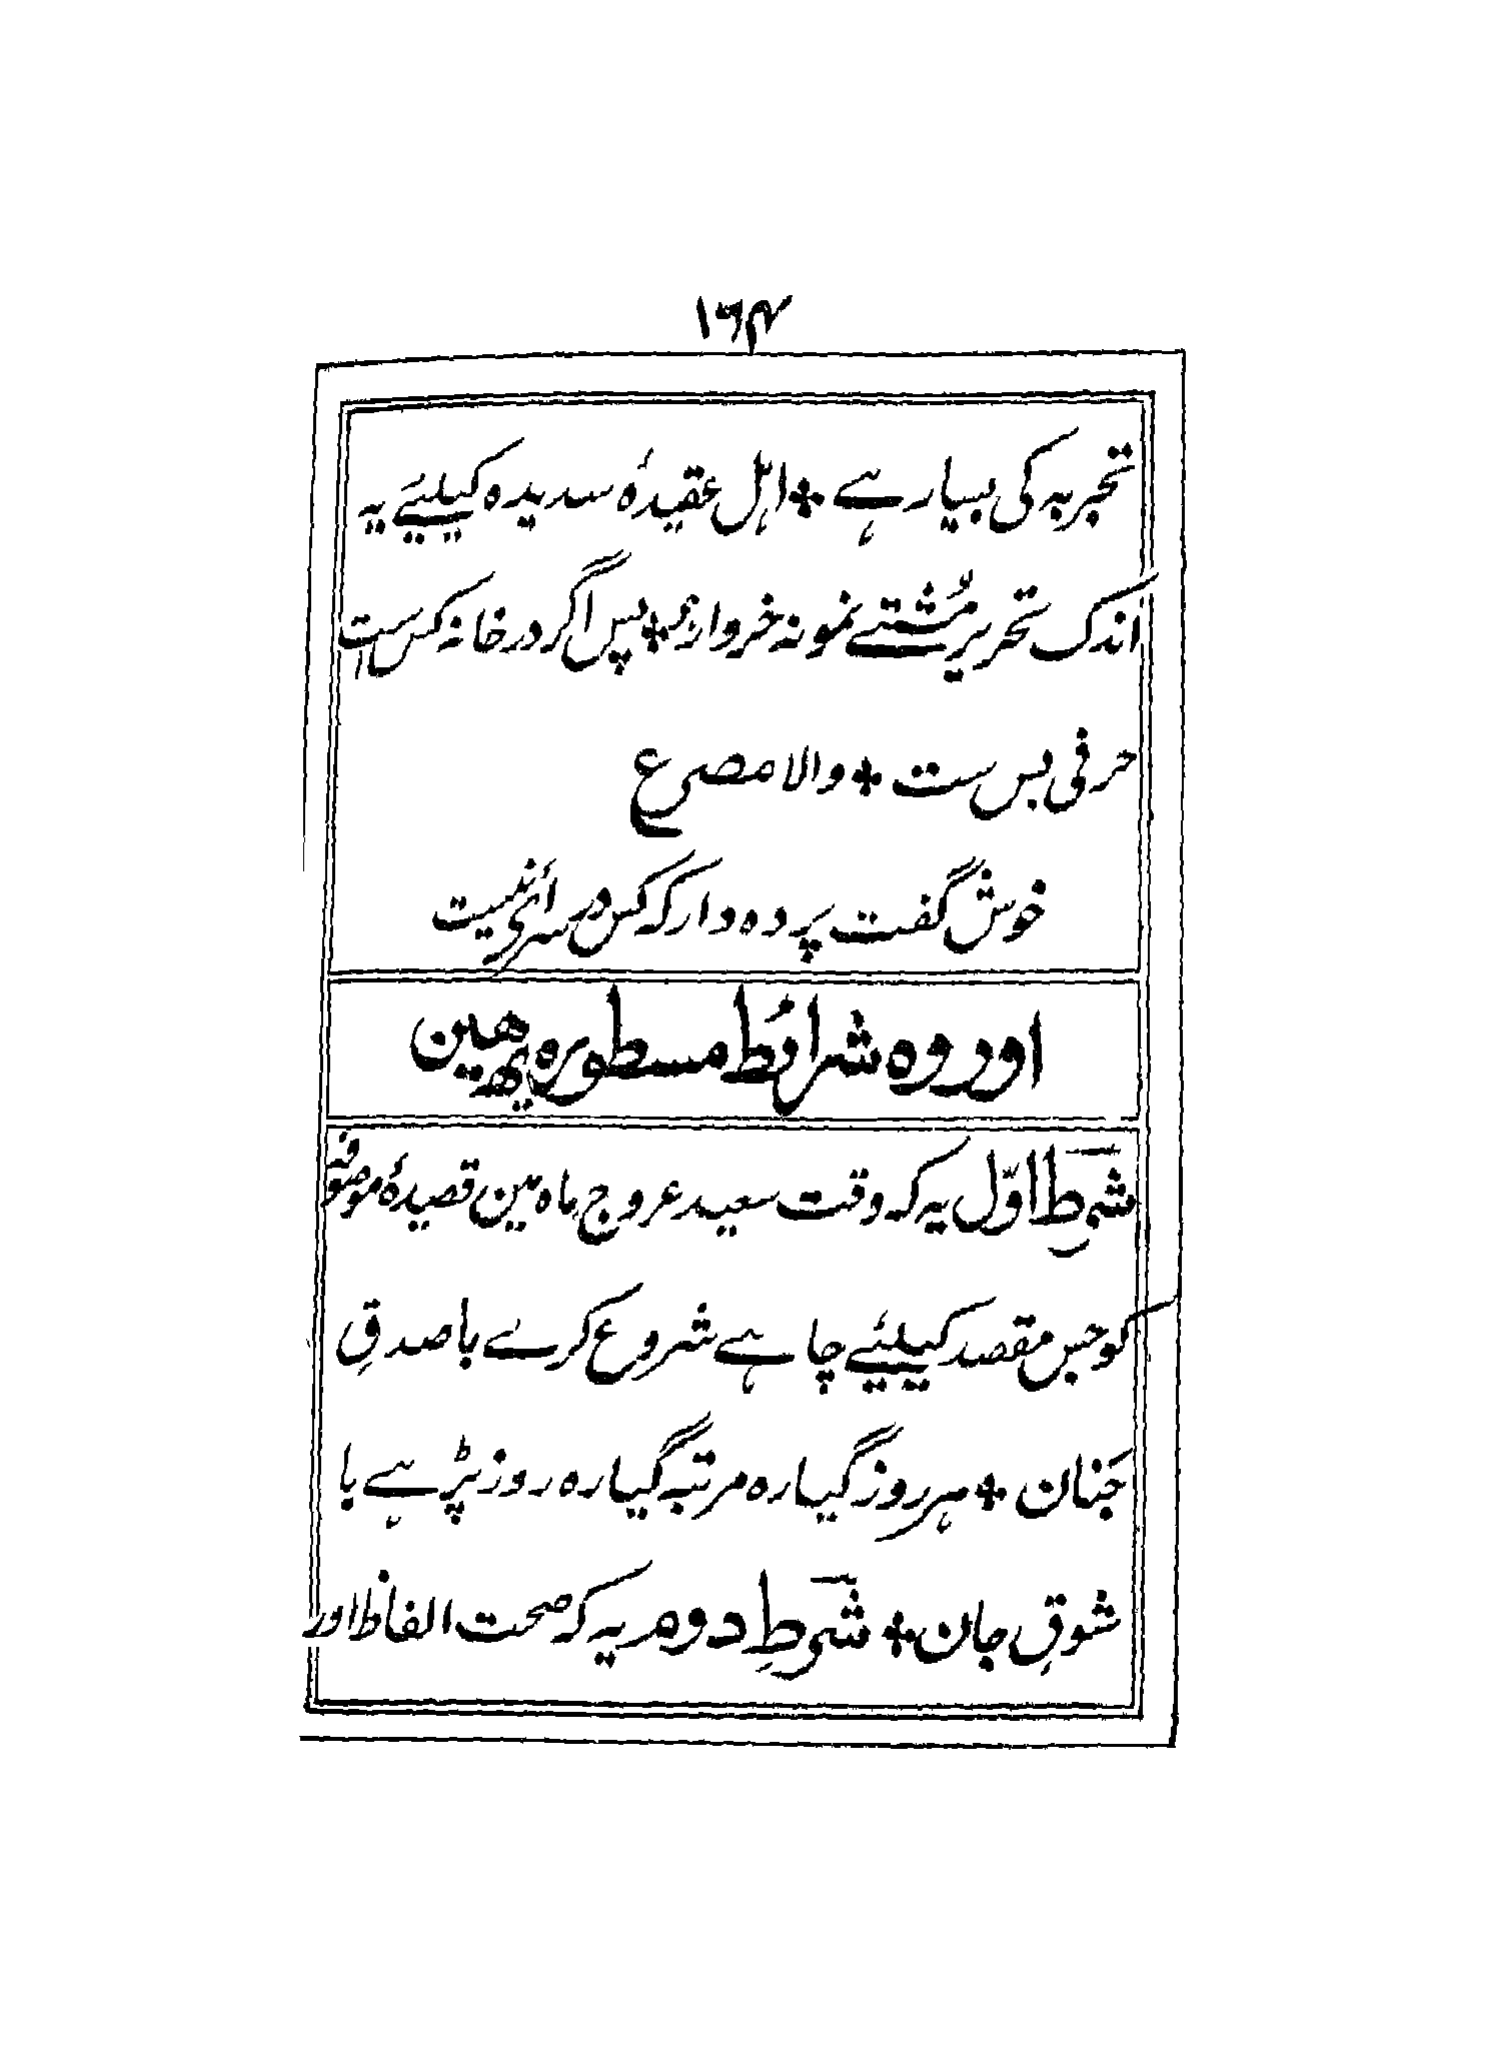 ۱۶۴
تجربہ کی بسیار ہے ٭ اہل عقیدۂ سدیدہ کیلئے یہ
اندک تحریر مُشتے نمونہ خرواری ٭ پس اگر در خانہ کس است
حرفی بس ست ٭ والا مصرع
خوش گفت پردہ دار کہ کس در سرائی نیست
اور وہ شرائط مسطورہ یھ ھین
شرط اوّل یہ کہ وقت سعید عروج ماہ مین قصیدۂ موصوفہ
کو جس مقصد کیلئے چاہے شروع کرے با صدقِ
جَنان ٭ ہر روز گیارہ مرتبہ گیارہ روز پڑہے با
شوقِ جان ٭ شرطِ دوم یہ کہ صحت الفاظ اور